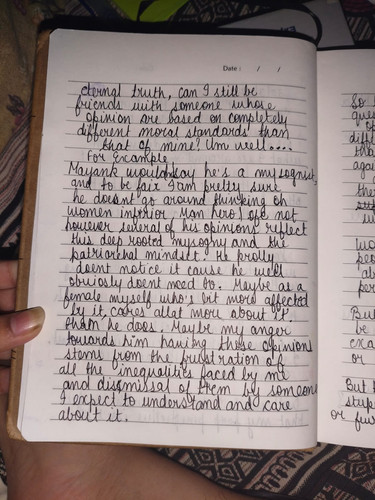 Date: / /
eternal truth, can I still be
friends with someone whose
opinion are based on completely
different moral standards than
that of mine? Um well....
For example
Mayank would say he's a mysognist,
and to be fair I am pretty sure
he doesnt go around thinking oh
women inferior, man hero! ofc not
however several of his opinions reflect
this deep rooted mysogny and the
patriarchal mindset. He prolly
doent notice it cause he well
obviosly doent need to. Maybe as a
female myself who's bit more affected
by it, cares allot more about it,
than he does. Maybe my anger
towards him having these opinions
stems from the frustration of
all the inequalities faced by me
and dismissal of them by someone
I expect to understand and care
about it.
So
ques
diff
tha
agai
the
peo
per
But
be
exa
or
But
stup
or